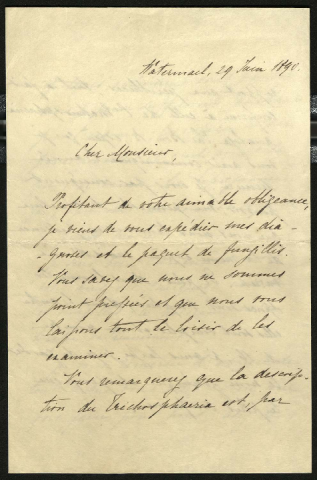 Watermael, 29 Juin 1898.
Cher Monsieur,
Profitant de votre aimable obligeance,
je viens de vous expédier mes dia-
gnoses et le paquet de fungilles.
Vous savez que nous ne sommes
point pressés et que nous vous
laissons tout le loisir de les
examiner.
Vous remarquerez que la descrip-
tion du Trichosphaeria est, par